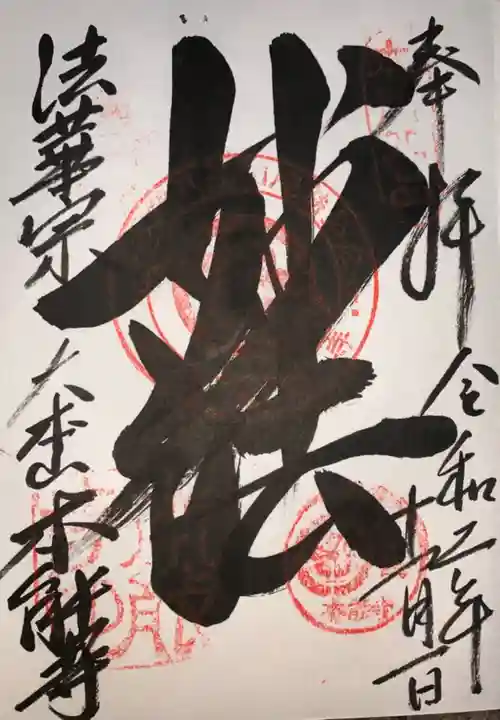 奉拝
令和二年
十二月一日
妙法
法華宗大本山本能寺
本能寺